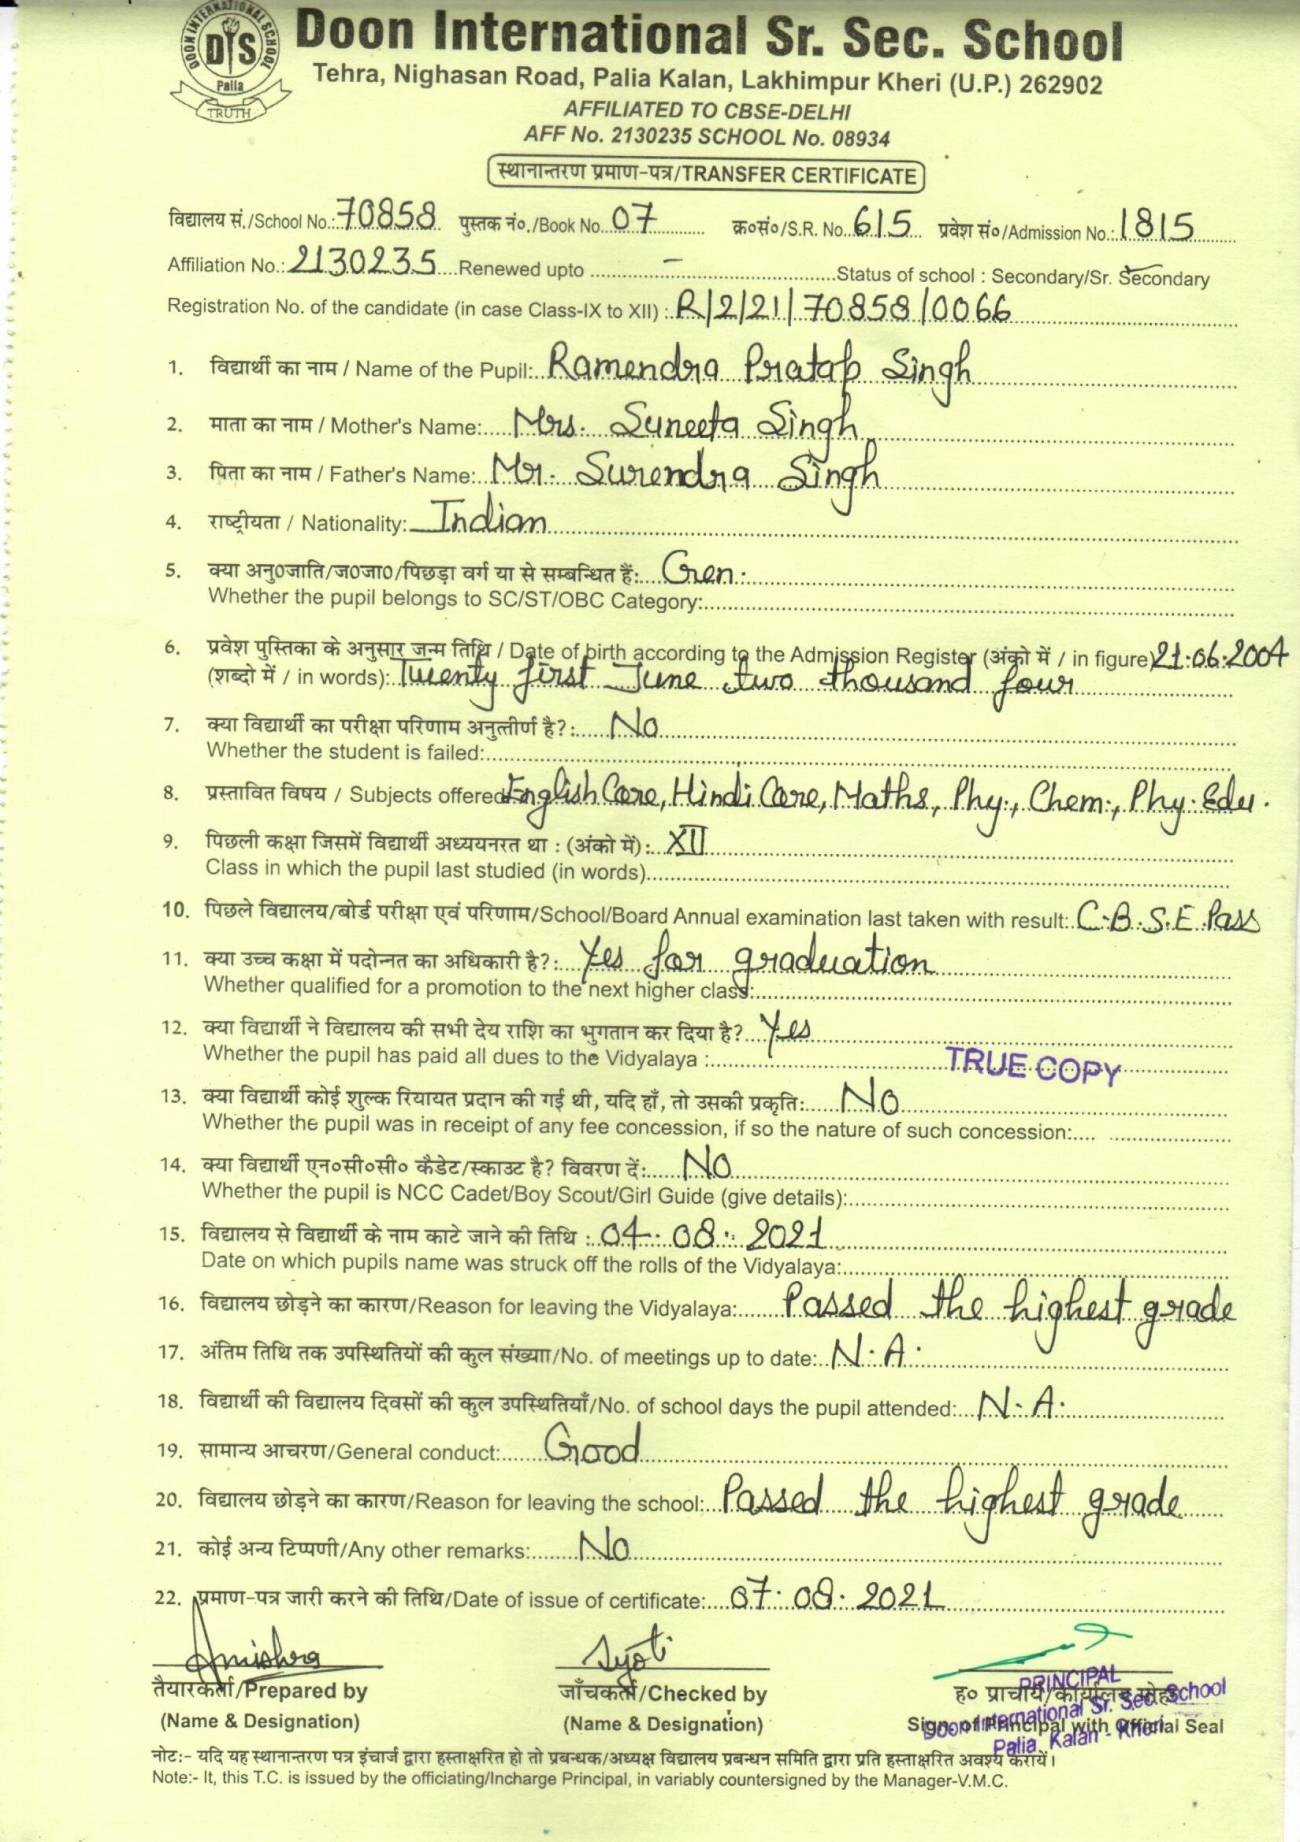 DOON INTERNATIONAL SCHOOL
DIS
Palia
TRUTH
Doon International Sr. Sec. School
Tehra, Nighasan Road, Palia Kalan, Lakhimpur Kheri (U.P.) 262902
AFFILIATED TO CBSE-DELHI
AFF No. 2130235 SCHOOL No. 08934
स्थानान्तरण प्रमाण-पत्र/TRANSFER CERTIFICATE
विद्यालय सं./School No.: 70858 पुस्तक नं०./Book No. 07 क्र०सं०/S.R. No. 615 प्रवेश सं०/Admission No.: 1815
Affiliation No.: 2130235 Renewed upto - Status of school : Secondary/Sr. Secondary
Registration No. of the candidate (in case Class-IX to XII) : R/2/21/70858/0066
1. विद्यार्थी का नाम / Name of the Pupil: Ramendra Pratap Singh
2. माता का नाम / Mother's Name: Mrs. Suneeta Singh
3. पिता का नाम / Father's Name: Mr. Surendra Singh
4. राष्ट्रीयता / Nationality: Indian
5. क्या अनु०जाति/ज०जा०/पिछड़ा वर्ग या से सम्बन्धित हैं: Gen.
Whether the pupil belongs to SC/ST/OBC Category:
6. प्रवेश पुस्तिका के अनुसार जन्म तिथि / Date of birth according to the Admission Register (अंको में / in figure) 21.06.2004
(शब्दो में / in words): Twenty first June two thousand four
7. क्या विद्यार्थी का परीक्षा परिणाम अनुत्तीर्ण है?: No
Whether the student is failed:
8. प्रस्तावित विषय / Subjects offered English Core, Hindi Core, Maths, Phy., Chem., Phy. Edu.
9. पिछली कक्षा जिसमें विद्यार्थी अध्ययनरत था : (अंको में): XII
Class in which the pupil last studied (in words)
10. पिछले विद्यालय/बोर्ड परीक्षा एवं परिणाम/School/Board Annual examination last taken with result: C.B.S.E. Pass
11. क्या उच्च कक्षा में पदोन्नत का अधिकारी है?: Yes for graduation
Whether qualified for a promotion to the next higher class:
12. क्या विद्यार्थी ने विद्यालय की सभी देय राशि का भुगतान कर दिया है? Yes
Whether the pupil has paid all dues to the Vidyalaya :
TRUE COPY
13. क्या विद्यार्थी कोई शुल्क रियायत प्रदान की गई थी, यदि हाँ, तो उसकी प्रकृति: No
Whether the pupil was in receipt of any fee concession, if so the nature of such concession:
14. क्या विद्यार्थी एन०सी०सी० कैडेट/स्काउट है? विवरण दें: No
Whether the pupil is NCC Cadet/Boy Scout/Girl Guide (give details):
15. विद्यालय से विद्यार्थी के नाम काटे जाने की तिथि : 04.08.2021
Date on which pupils name was struck off the rolls of the Vidyalaya:
16. विद्यालय छोड़ने का कारण/Reason for leaving the Vidyalaya: Passed the highest grade
17. अंतिम तिथि तक उपस्थितियों की कुल संख्या/No. of meetings up to date: N.A.
18. विद्यार्थी की विद्यालय दिवसों की कुल उपस्थितियाँ/No. of school days the pupil attended: N.A.
19. सामान्य आचरण/General conduct: Good
20. विद्यालय छोड़ने का कारण/Reason for leaving the school: Passed the highest grade
21. कोई अन्य टिप्पणी/Any other remarks: No
22. प्रमाण-पत्र जारी करने की तिथि/Date of issue of certificate: 07.08.2021
Amishra Jyoti
तैयारकर्ता/Prepared by जाँचकर्ता/Checked by ह० प्राचार्य/कार्यालय मोहर
(Name & Designation) (Name & Designation) Sign. of Principal with Official Seal
PRINCIPAL
Doon International Sr. Sec. School
Palia Kalan - Kheri
नोट:- यदि यह स्थानान्तरण पत्र इंचार्ज द्वारा हस्ताक्षरित हो तो प्रबन्धक/अध्यक्ष विद्यालय प्रबन्धन समिति द्वारा प्रति हस्ताक्षरित अवश्य करायें।
Note:- It, this T.C. is issued by the officiating/Incharge Principal, in variably countersigned by the Manager-V.M.C.